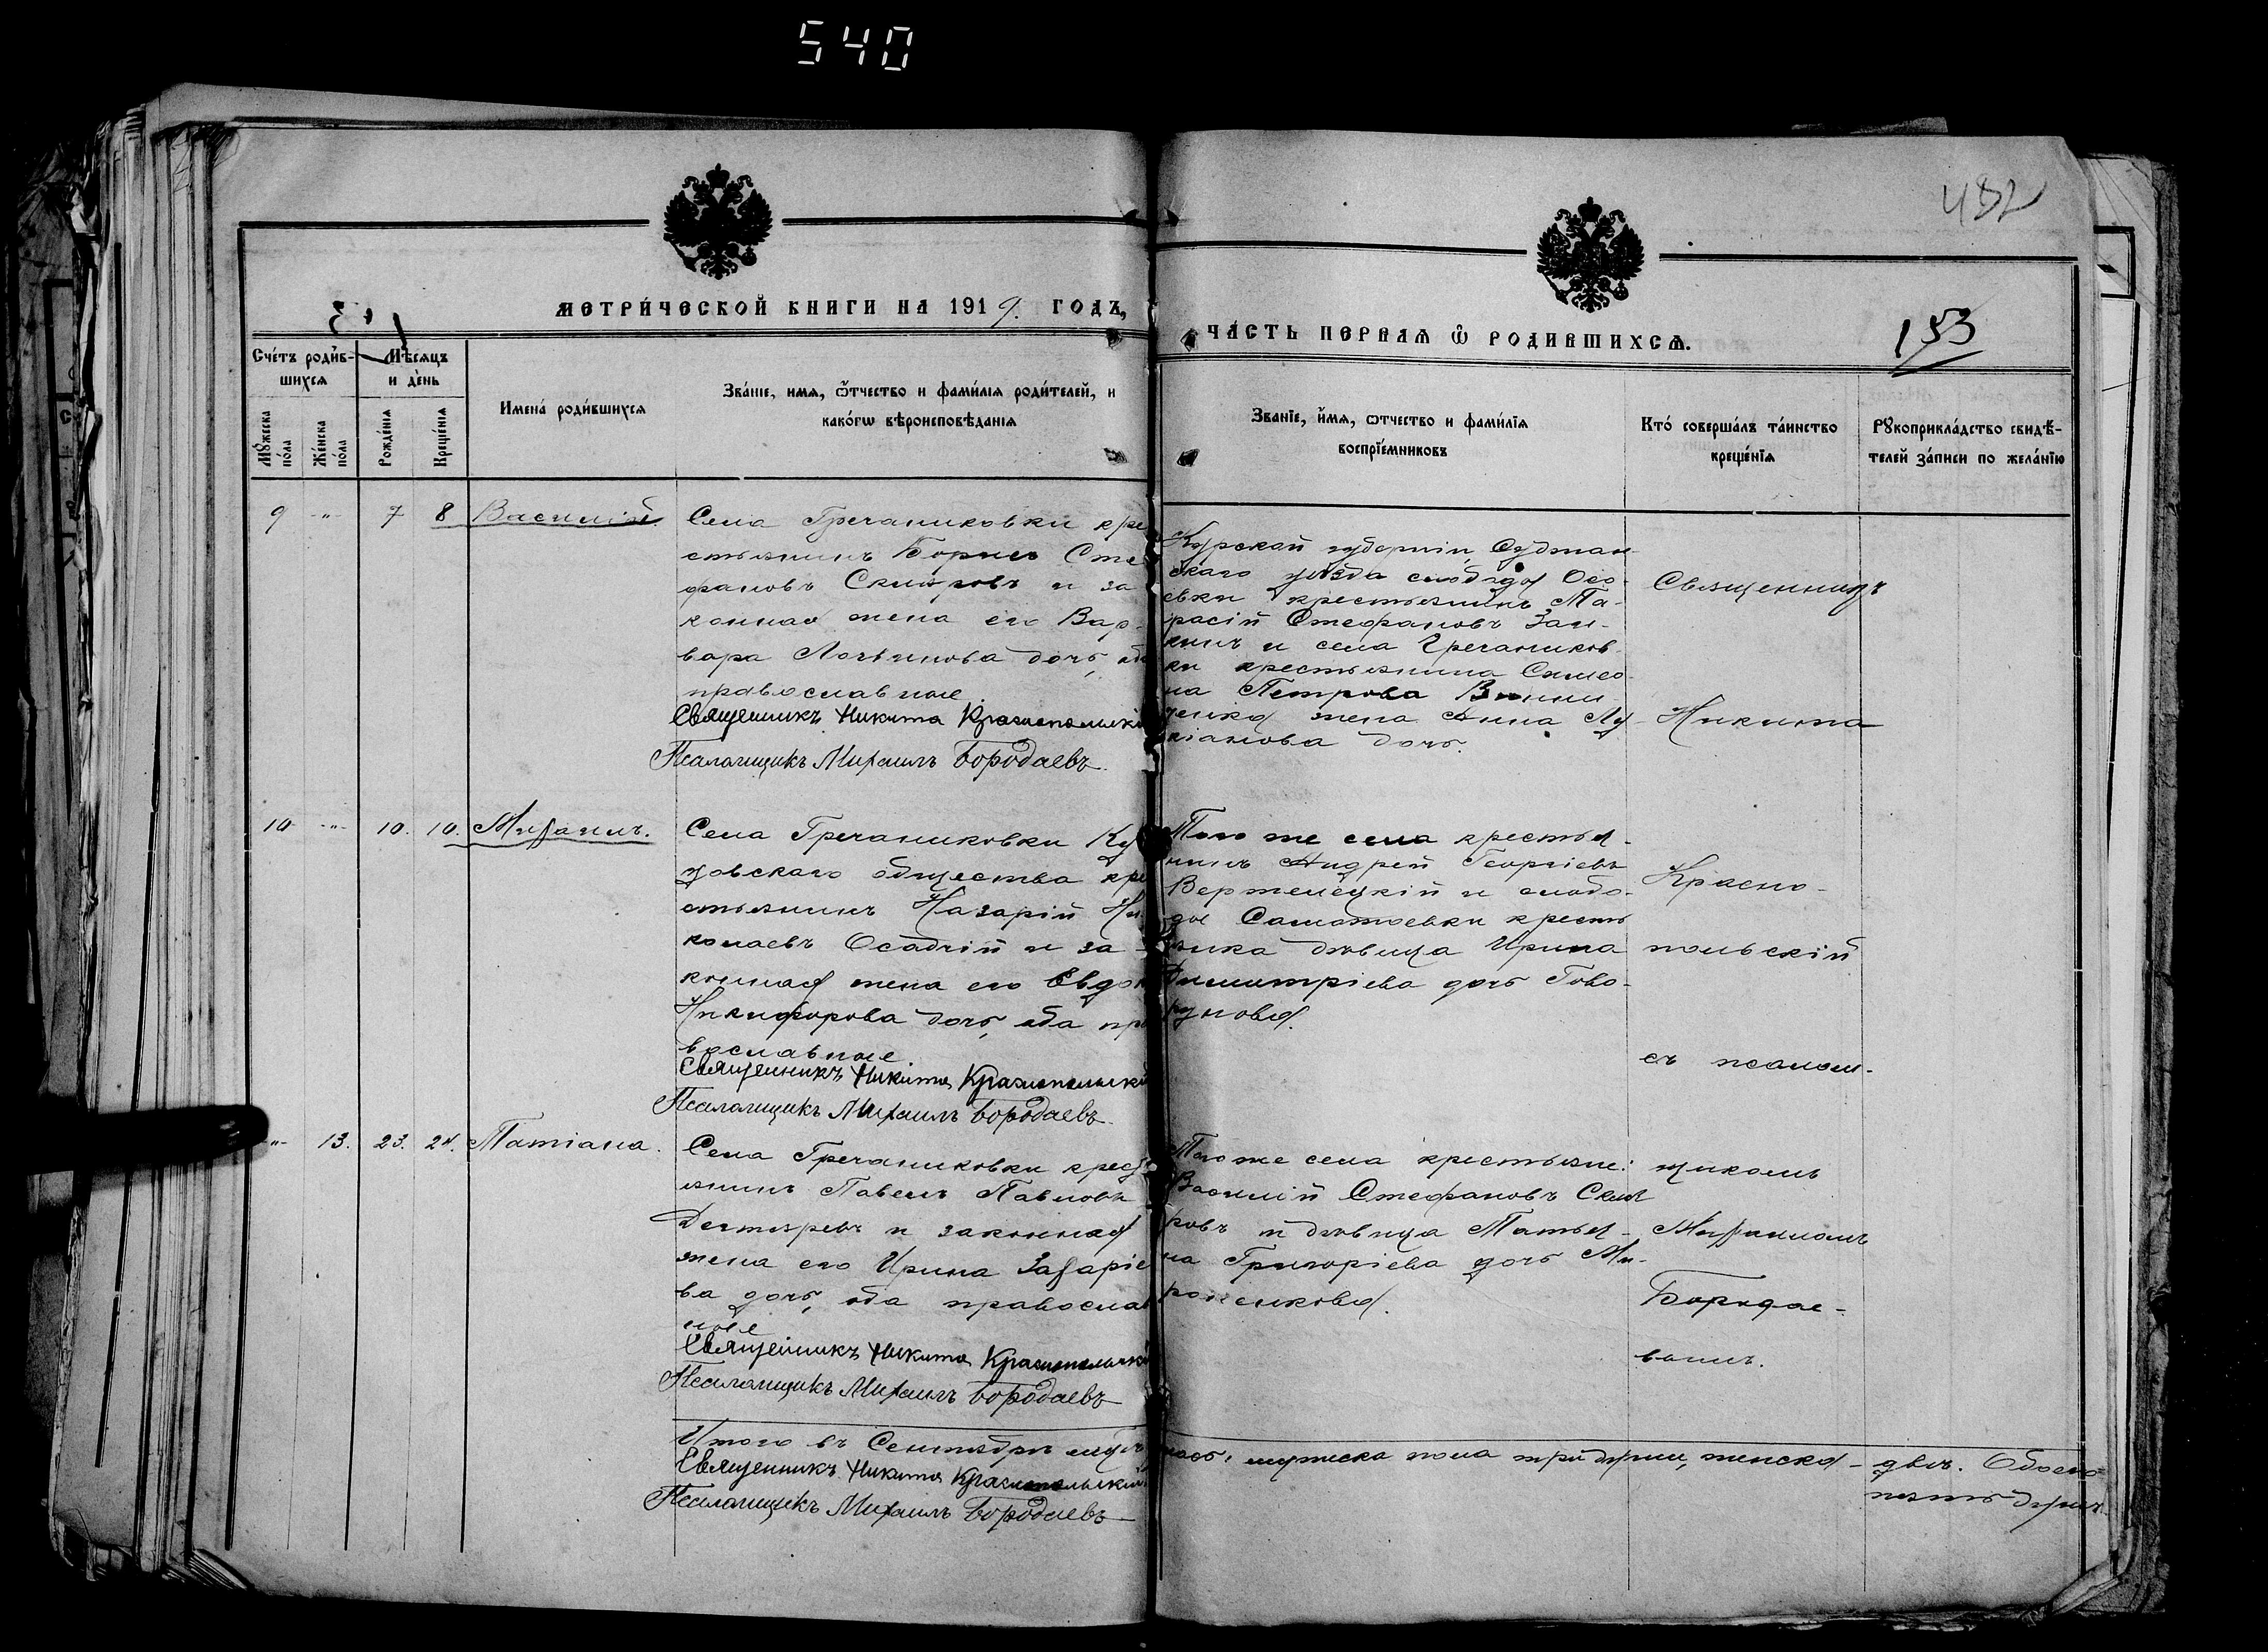 540
482
МЕТРИ́ЧЕСКОЙ КНИГИ НА 1919. ГОДЪ,
ЧА́СТЬ ПЕРВАЯ Ѿ РОДИВШИХСѦ.
153
Сче́тъ роди́в-
шихся
Мꙋ́жеска по́ла
Же́нска по́ла
Мѣ́сяцъ
и де́нь
Рожде́нія
Креще́нія
Имена́ роди́вшихся
Зва́ніе, имя, ѻ́тчество и фами́лія роди́телей, и
како́гѡ вѣроисповѣ́данія
Званіе, и́мя, ѻтчество и фами́лія
воспріе́мниковъ
Кто́ соверша́лъ та́инство
креще́нія
Рꙋкоприкла́дство свидѣ́-
телей за́писи по жела́нію
9 -"- 7 8 Василій.
Села Гречаниковки кре
стьянинъ Борисъ Сте
фановъ Скляровъ и за
конная жена его Вар-
вара Логвинова дочь,
православные.
Священникъ Никита Краснопольскі
Псаломщикъ Михаилъ Бородаевъ.
Курской губерніи, Суджан-
скаго уѣзда слободы
крестьянинъ
Стефановъ
и села Гречаников-
ки крестьянина Симео-
на Петрова
жена Анна Лу-
кіанова дочь.
Священникъ
Никита
10 -"- 10. 10. Михаилъ.
Села Гречаниковки
общества кре
стьянинъ Назарій Ни
колаевъ Осадчій и за-
конная жена его Евдок
Никифорова дочь, оба пра
вославные.
Священникъ Никита Краснопольскі
Псаломщикъ Михаилъ Бородаевъ.
Того же села крестья-
нинъ Андрей Георгіевъ
Вертелецкій и слобо-
ды Самотоевки кресть
янка дѣвица Ирина
Димитріева дочь Гово-
рунова.
Красно-
польскій
съ псалом-
-"- 13. 23. 24. Татіана.
Села Гречаниковки крест
янинъ Павелъ Павловъ
Дегтяревъ и законная
жена его Ирина Захаріе
ва дочь, оба православ
ные
Священникъ Никита Краснопольскі
Псаломщикъ Михаилъ Бородаевъ
Того же села крестьяне:
Василій Стефановъ Скля
ровъ и дѣвица Татья-
на Григоріева дочь Ми-
роненкова.
щикомъ
Михаиломъ
Бородае-
вымъ.
Итого въ Сентябрѣ
мужеска пола три души, женска - двѣ. Обоего
пять душъ.
Священникъ Никита Краснопольскій
Псаломщикъ Михаилъ Бородаевъ